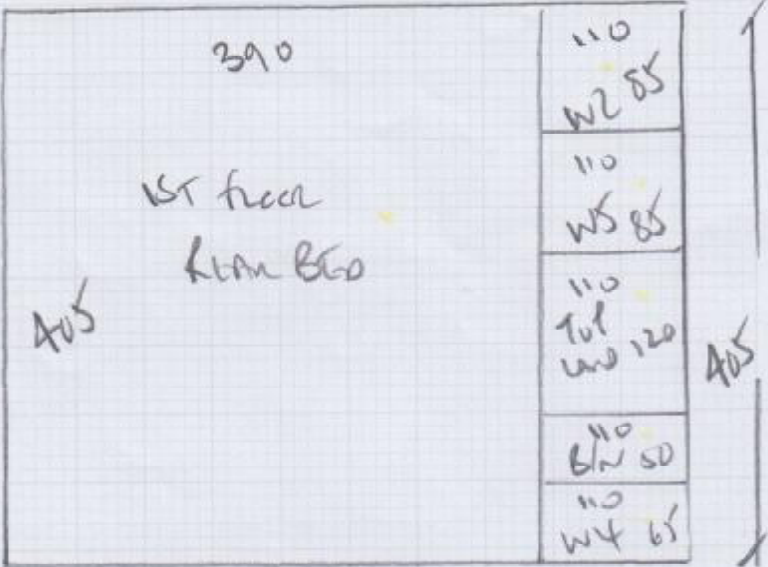 390
1ST floor
REAR BED
405
110
W2 85
110
W5 85
110
TOP
LAND 120
110
B/N 50
110
W4 65
405